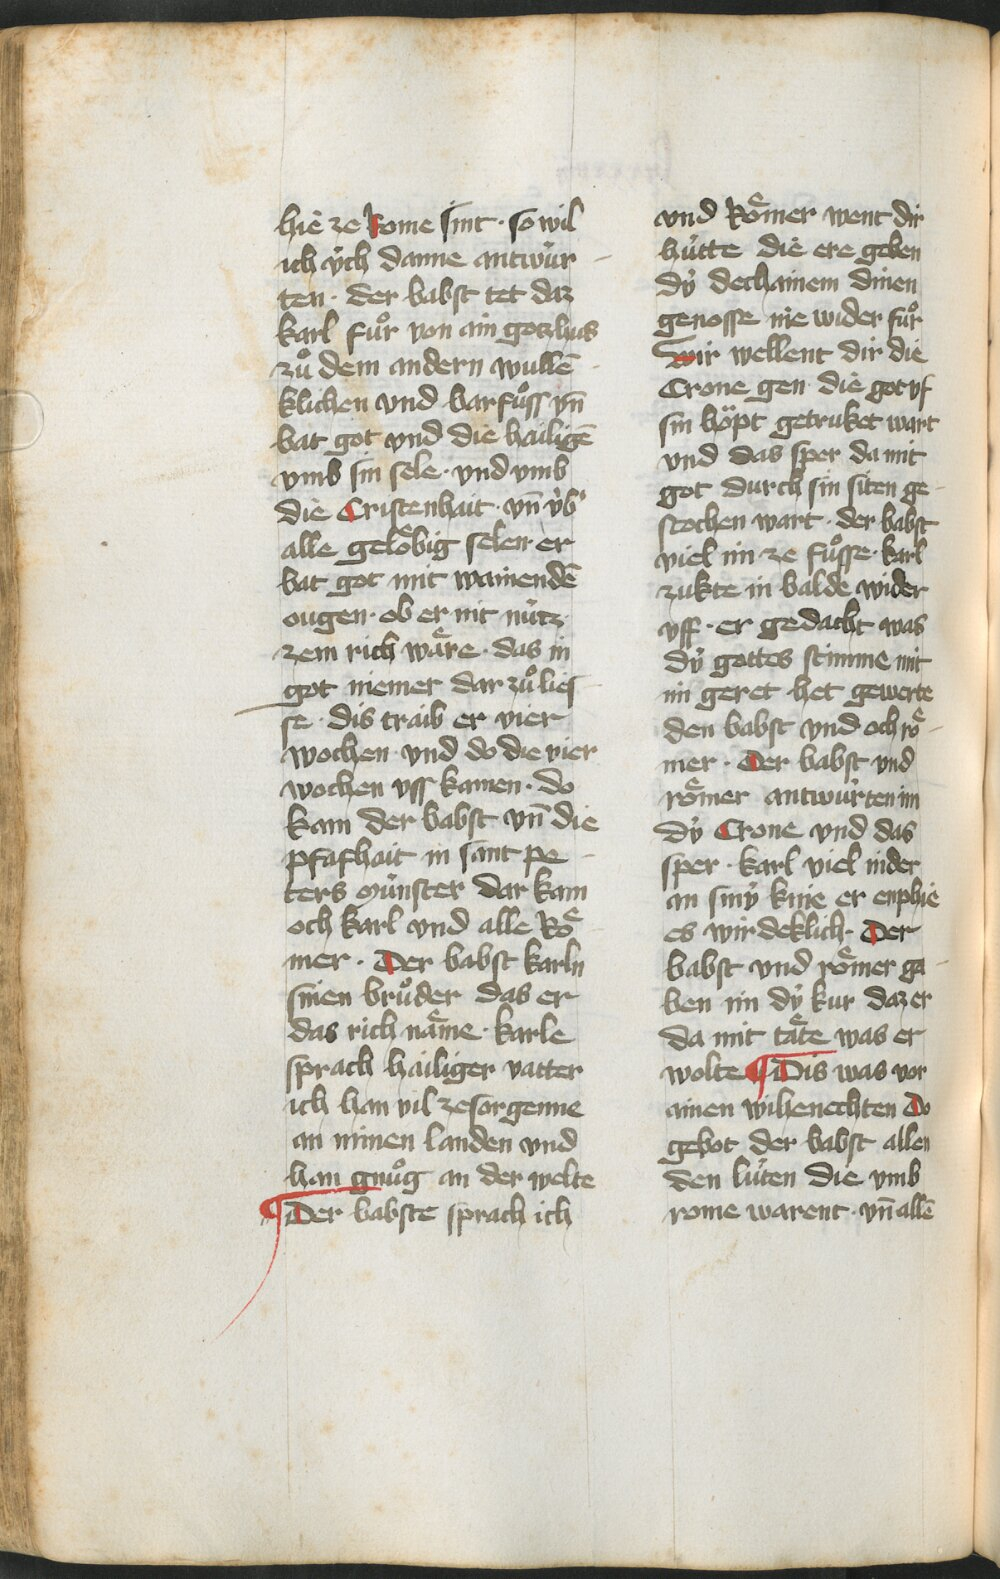 hie ze Rome sint · so wil
ich v́ch danne antwúr
ten · der babst tet daz
karl fuͦr von ain gotzhus
zuͦ dem andern wullē
klichen vnd barfuͦss vn̄
bat got vnd die hailigē
vmb sin sele · vnd vmb
die Cristenhait · vn̄ v́bʼ
alle geloͤbig selen er
bat got mit wainendē
ougen · ob er nit nútz
zem rich waͤre · das in
got niemer dar zuͦ lies
se · dis traib er vier
wochen vnd do die vier
wochen vss kamen · do
kam der babst vn̄ die
pfafhait in sant pe
ters múnster dar kam
och karl vnd alle Roͤ
mer · Der babst karln
sinen bruͦder das er
das rich naͤme · karle
sprach hailiger vatter
ich han vil ze sorgenne
an minen landen vnd
han gnuͦg an der welte
¶ Der babste sprach ich
vnd Roͤmer went dir
hútte die ere geben
dv́ dechainem dinen
genosse nie wider fuͦr
Wir wellent dir die
Crone gen die got vf
sin hoͤpt getruket wart
vnd das sper da mit
got durch sin siten ge
stochen wart · der babst
viel im ze fuͦsse · karl
zukte in balde wider
vff · er gedacht was
dv́ gottes stimme mit
im geret het gewerte
den babst vnd och roͤ
mer · Der babst vnd
roͤmer antwúrten im
dv́ Crone vnd das
sper · karl viel nider
an sinv́ knie er enphie
es wirdeklich · Der
babst vnd roͤmer ga
ben im dv́ kur daz er
da mit taͤte was er
wolte ¶ Dis was vor
ainen wihenechten Do
gebot der babst allen
den lúten die vmb
rome warent · vn̄ allē